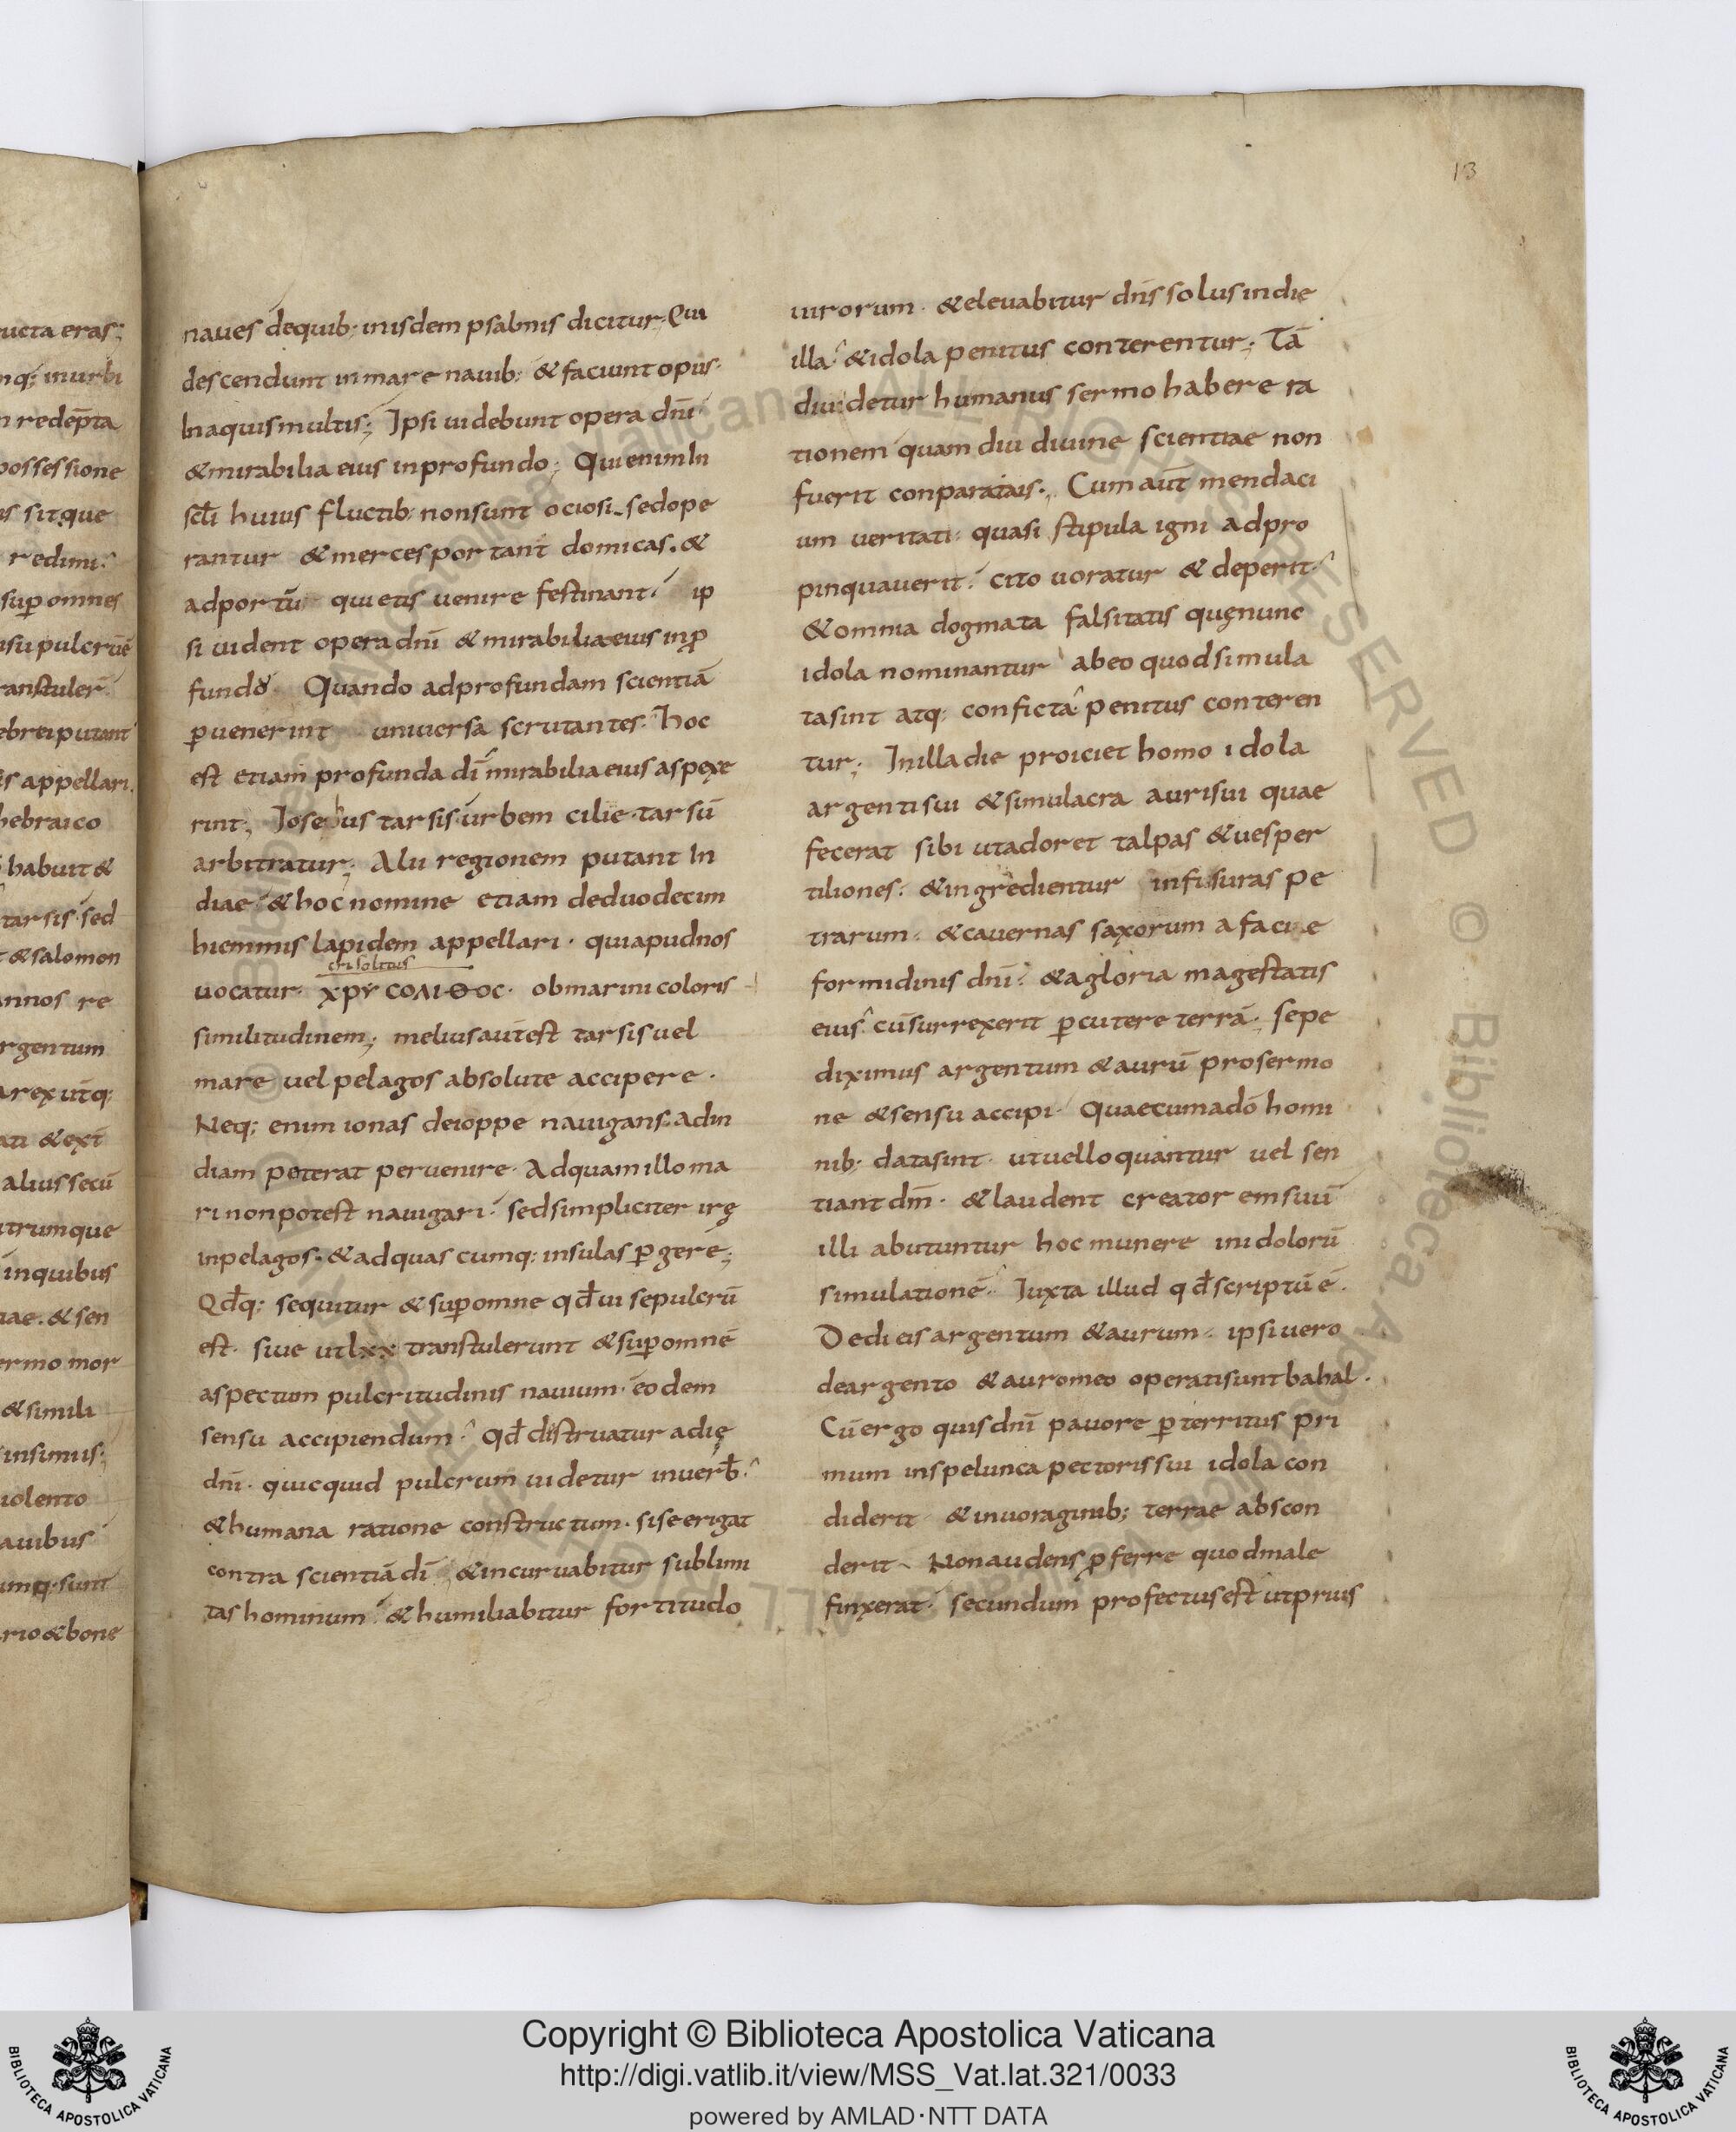 13
ucta eras;
nq; inurbi
n redēpta
possessione
es sitque
redimi.
sup̄ omnes
usu pulcrūē
ranstuler
ebrei putant
is appellari.
hebraico
habuit &
tarsis. sed
& salomon
annos re
rgentum
arex utq;
ati & exi
alius secū
utrumque
inquibus
uae. & sen
ermo mor
& simili
insimus;
uiolento
auibus
umq; sunt
rio & bone
naues dequib; inisdem psalmis dicitur; Qui
descendunt inmare nauib; & faciunt opus.
Inaquismultis; Ipsi uidebunt opera dn̄i
& mirabilia eius inprofundo; Qui enim In
scl̄i huius fluctib; nonsunt ociosi. sedope
rantur & merces portant domicas. &
adportū quietis uenire festinant. ip
si uident opera dn̄i & mirabilia eius inp̄
fundo. Quando adprofundam scientiā
p̄uenerint uniuersa scrutantes. hoc
est etiam profunda dī mirabilia eius aspexe
rint; Iosebus tarsis urbem cilie. tarsū
arbitratur; Alii regionem putant In
diae. & hoc nomine etiam deduodecim
hiemmis lapidem appellari. quiapudnos
crisolitus
uocatur. χρΥ COΛΙΘΟC. obmarini coloris
similitudinem; melius aut̄ est tarsis uel
mare uel pelagos absolute accipere.
Neq; enim ionas deioppe nauigans. adin
diam poterat peruenire. Adquam illo ma
ri nonpotest nauigari. sedsimpliciter irę
inpelagos. & adquas cumq; insulas p̄gere;
Qd̄q; sequitur & sup̄omne qd̄ui sepulcrū
est. siue utlxx transtulerunt & sup̄omne
aspectum pulcritudinis nauium. eodem
sensu accipiendum. Qd̄ distruatur adię
dn̄i. quicquid pulcrum uidetur inuerb̄.
& humana ratione constructum. siseerigat
contra scientiā dī & incuruabitur sublimi
tas hominum. & humiliabitur fortitudo
uirorum. & eleuabitur dn̄s solus indie
illa. & idola penitus conterentur; Tā
diuidetur humanus sermo habere ra
tionem quam diu diuine scientiae non
fuerit conparatais. Cum aut̄ mendaci
um ueritati. quasi stipula igni adpro
pinquauerit. cito uoratur & deperit.
& omnia dogmata falsitatis quęnunc
idola nominantur abeo quodsimula
tasint atq; conficta penitus conteren
tur; Inilladie proiciet homo idola
argenti sui & simulacra aurisui quae
fecerat sibi utadoret talpas & uesper
tiliones. & ingredientur infisuras pe
trarum. & cauernas saxorum afacie
formidinis dn̄i. & agloria magestatis
eius. cū surrexerit p̄cutere terrā; sepe
diximus argentum & aurū prosermo
ne & sensu accipi. Quaecumadō homi
nib; datasint. utuelloquantur uel sen
tiant dm̄. & laudent creatorem suū
illi abutuntur hoc munere inidolorū
simulationē. Iuxta illud qd̄ scriptū ē.
Dedi eis argentum & aurum. ipsi uero
deargento & auromeo operatisuntbahal.
Cū ergo quis dn̄i pauore p̄territus pri
mum inspelunca pectoris sui idola con
diderit & inuoraginib; terrae abscon
derit. Non audens p̄ferre quodmale
finxerat. secundum profectus est utprius
Copyright © Biblioteca Apostolica Vaticana
http://digi.vatlib.it/view/MSS_Vat.lat.321/0033
powered by AMLAD·NTT DATA
BIBLIOTECA APOSTOLICA VATICANA
BIBLIOTECA APOSTOLICA VATICANA